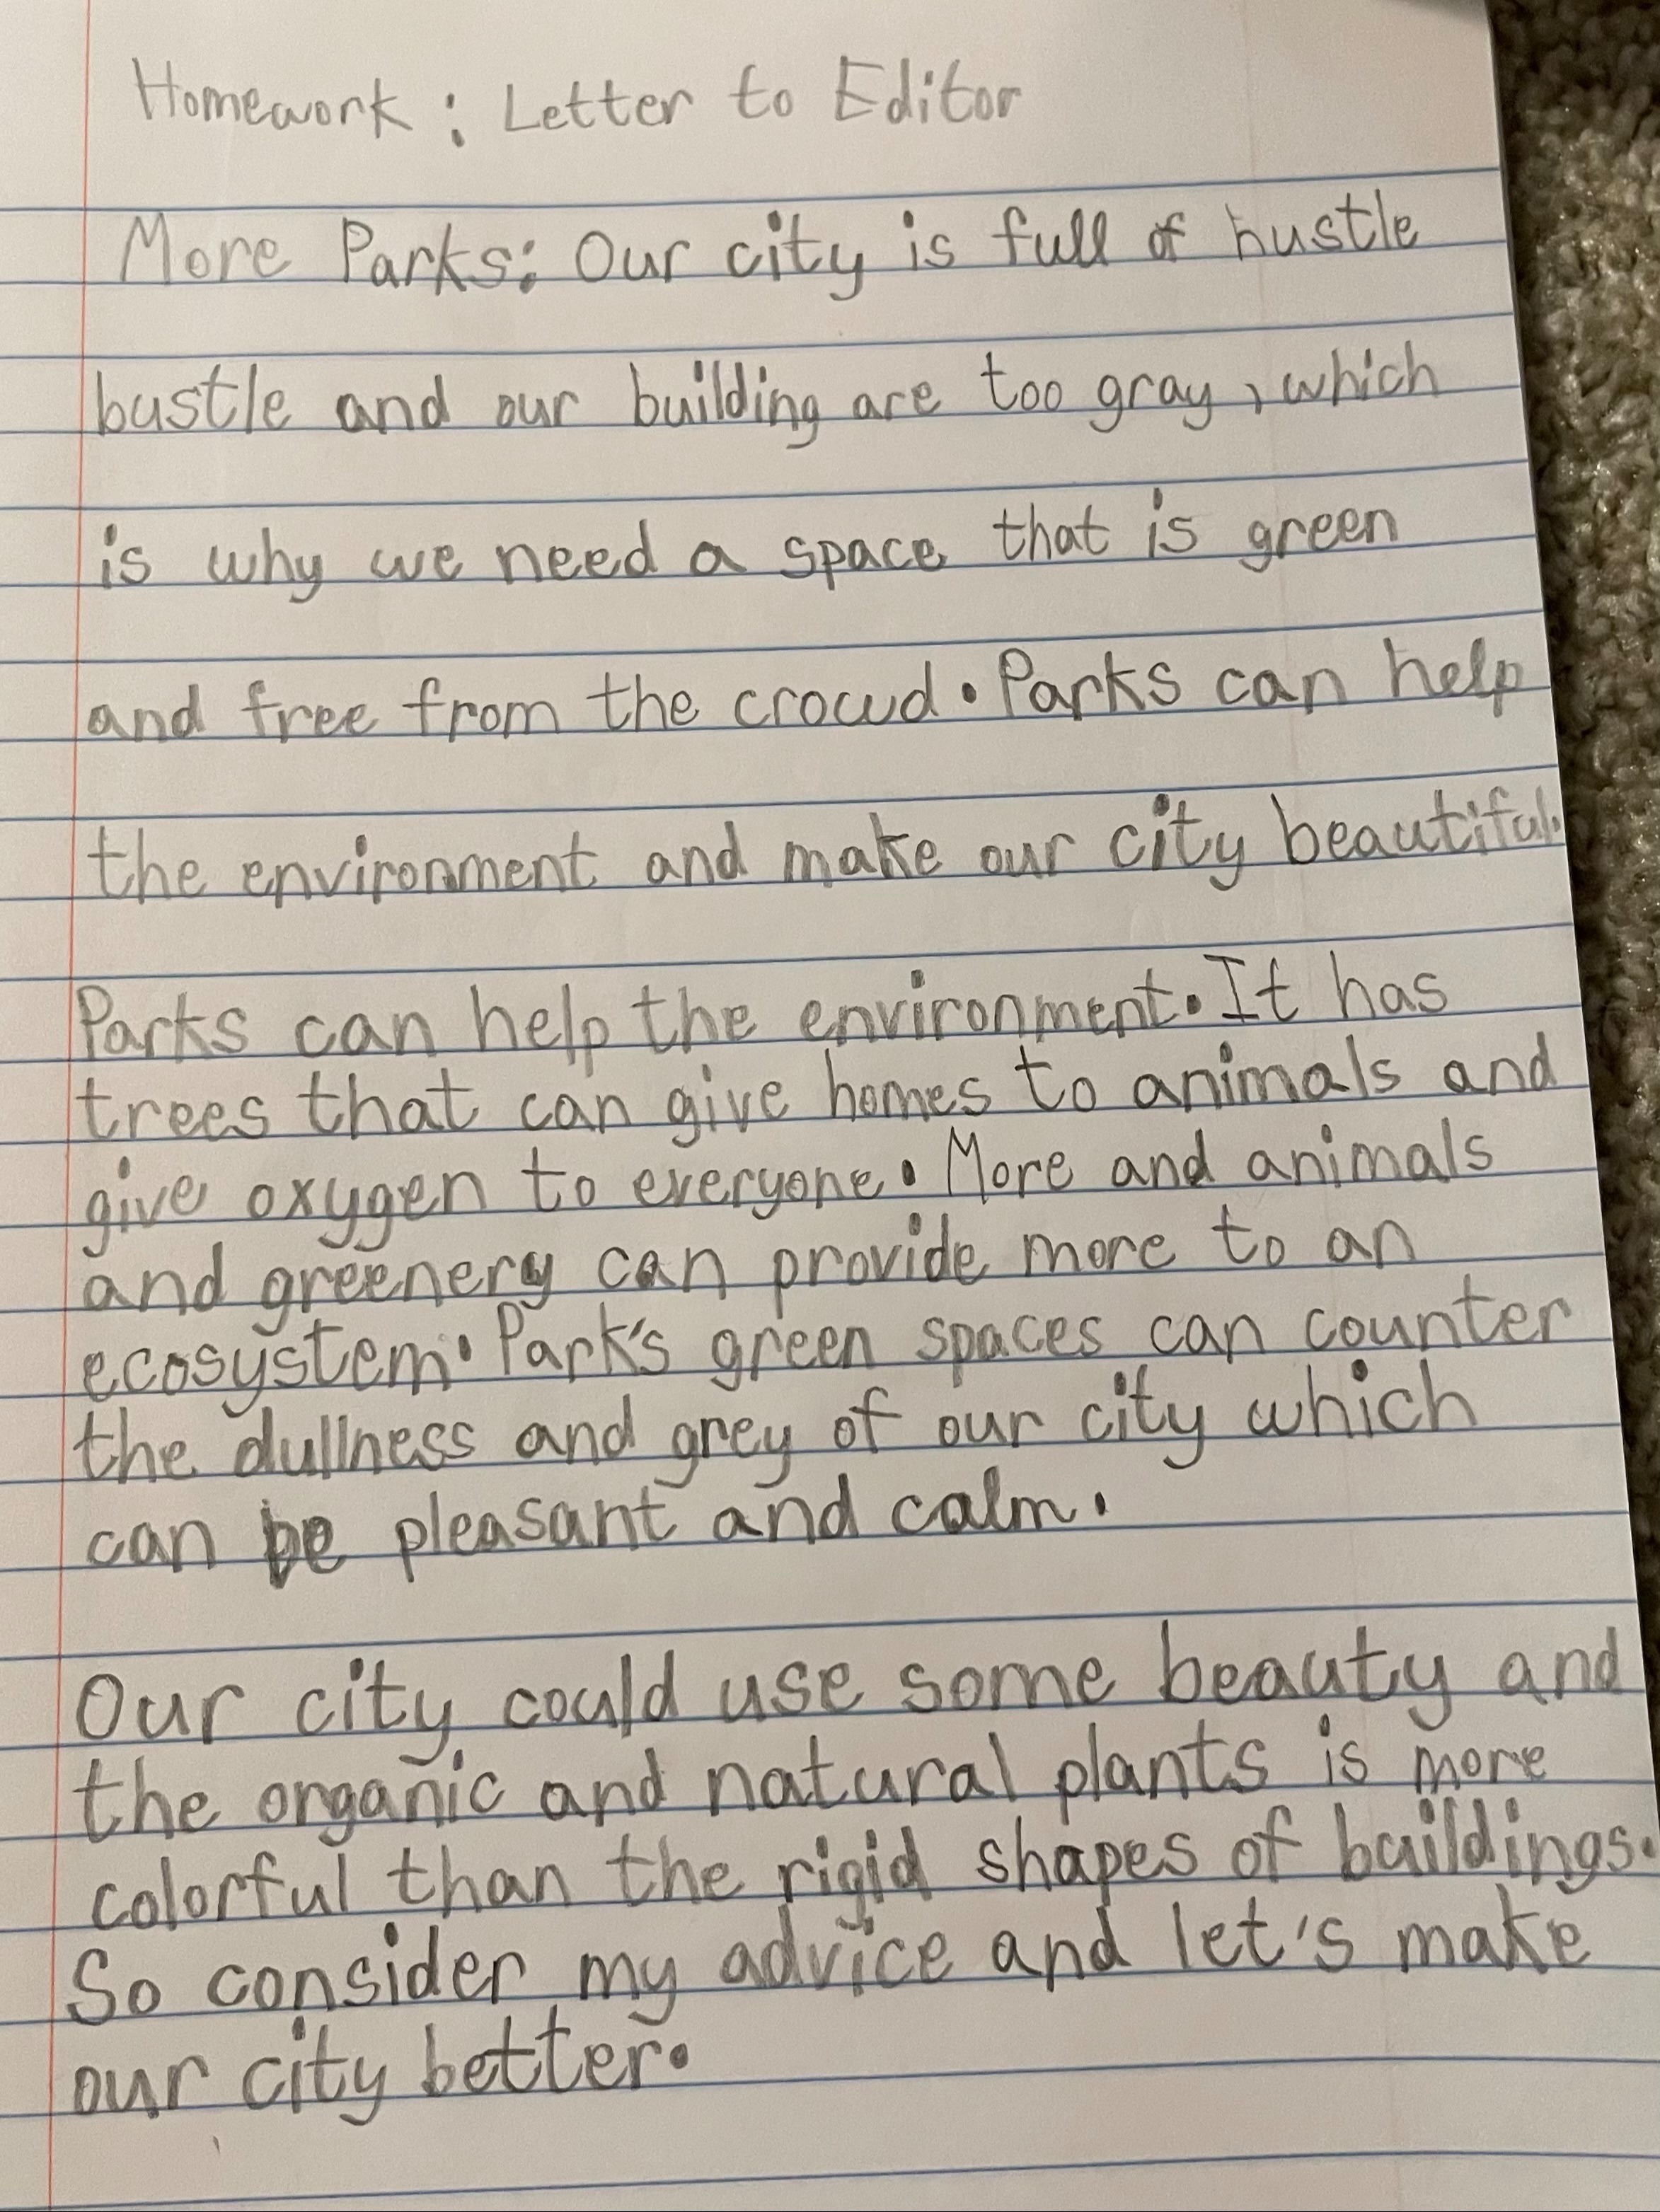 Homework: Letter to Editor
More Parks: Our city is full of hustle
bustle and our building are too gray, which
is why we need a space that is green
and free from the crowd. Parks can help
the environment and make our city beautiful.
Parks can help the environment. It has
trees that can give homes to animals and
give oxygen to everyone. More and animals
and greenery can provide more to an
ecosystem. Park's green spaces can counter
the dullness and grey of our city which
can be pleasant and calm.
Our city could use some beauty and
the organic and natural plants is more
colorful than the rigid shapes of buildings.
So consider my advice and let's make
our city better.